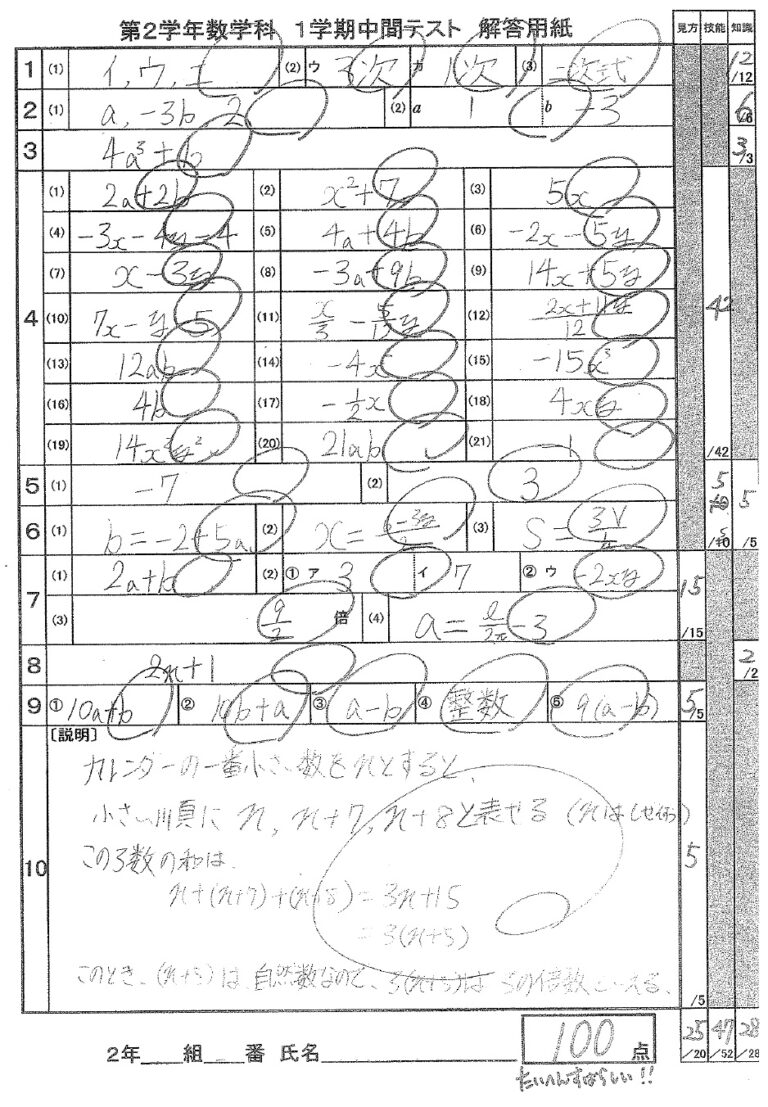 第2学年数学科 1学期中間テスト 解答用紙
見方 技能 知識
1 (1) イ,ウ,エ (2) ウ 3次 カ 1次 (3) 二次式 12 /12
2 (1) a, -3b, 2 (2) a 1 b -3 6 /6
3 4a³+b 3 /3
4 (1) 2a+2b (2) x²+7 (3) 5x
(4) -3x-4y-4 (5) 4a+4b (6) -2x-5y
(7) x-3y (8) -3a+9b (9) 14x+5y
(10) 7x-y-5 (11) (12) 42
(13) 12ab (14) -4x (15) -15x³
(16) 4b (17) -1/2x (18) 4xy
(19) 14x²y² (20) 21ab (21) 1 /42
5 (1) -7 (2) 3 5 5
6 (1) b=-2+5a (2) x= (3) S=3V/h 5 /10 /5
7 (1) 2a+b (2) ① ア 3 イ 7 ② ウ -2xy 15
(3) 9/2 倍 (4) a=ℓ/2π-3 /15
8 2n+1 2 /2
9 ① 10a+b ② 10b+a ③ a-b ④ 整数 ⑤ 9(a-b) 5 /5
10 〔説明〕
カレンダーの一番小さい数をnとすると、
小さい順に n, n+7, n+8と表せる (nは)
この3数の和は、
n+(n+7)+(n+8)=3n+15
=3(n+5)
5
このとき、(n+5)は 自然数なので、3(n+5)は 3の倍数といえる。
/5
2年 組 番 氏名 100 点 25 /20 47 /52 28 /28
たいへんすばらしい!!